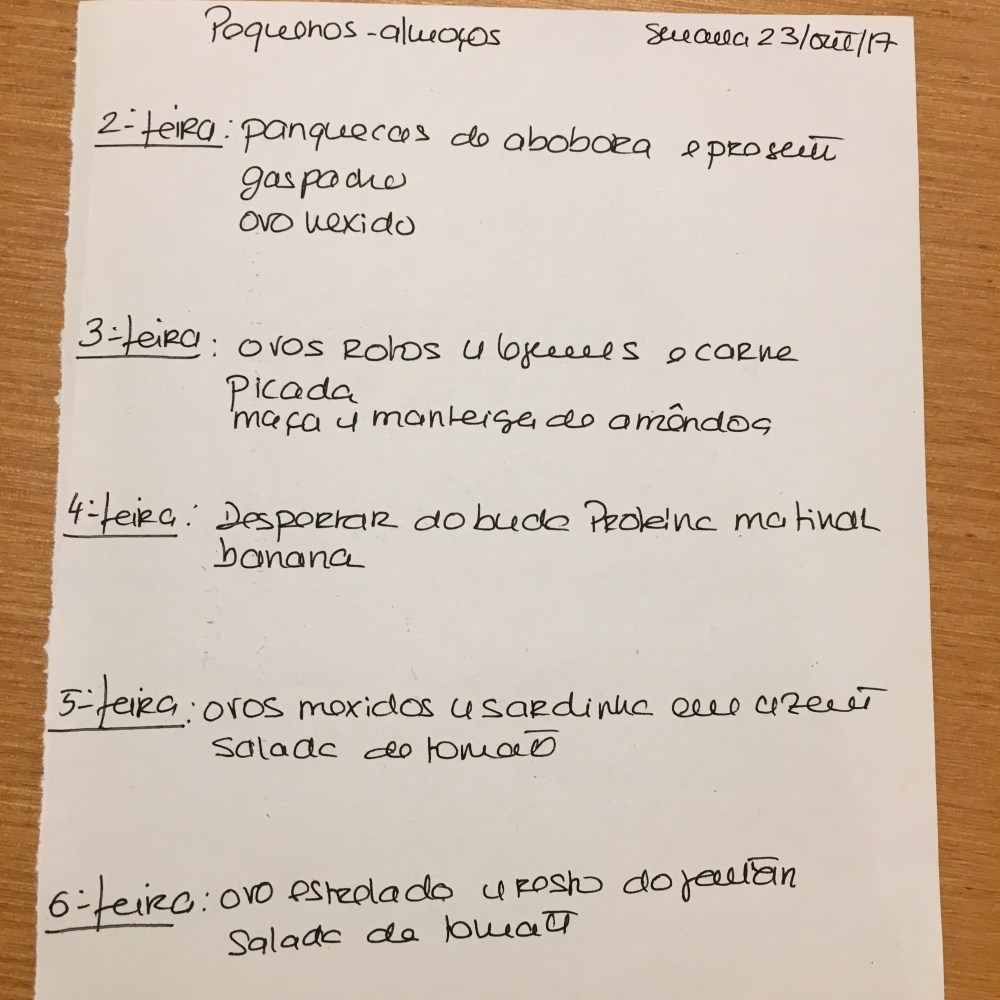 Pequenos-almoços Semana 23/out/17
2ª-feira: panquecas de abobora e prosciut
gaspacho
ovo mexido
3ª-feira: ovos rotos c/ legumes e carne
picada
maça c/ manteiga de amêndoa
4ª-feira: Despertar do buda Proteina matinal
banana
5ª-feira: ovos mexidos c/ sardinha em azeite
salada de tomate
6ª-feira: ovo estrelado c/ resto do jantar
Salada de tomate